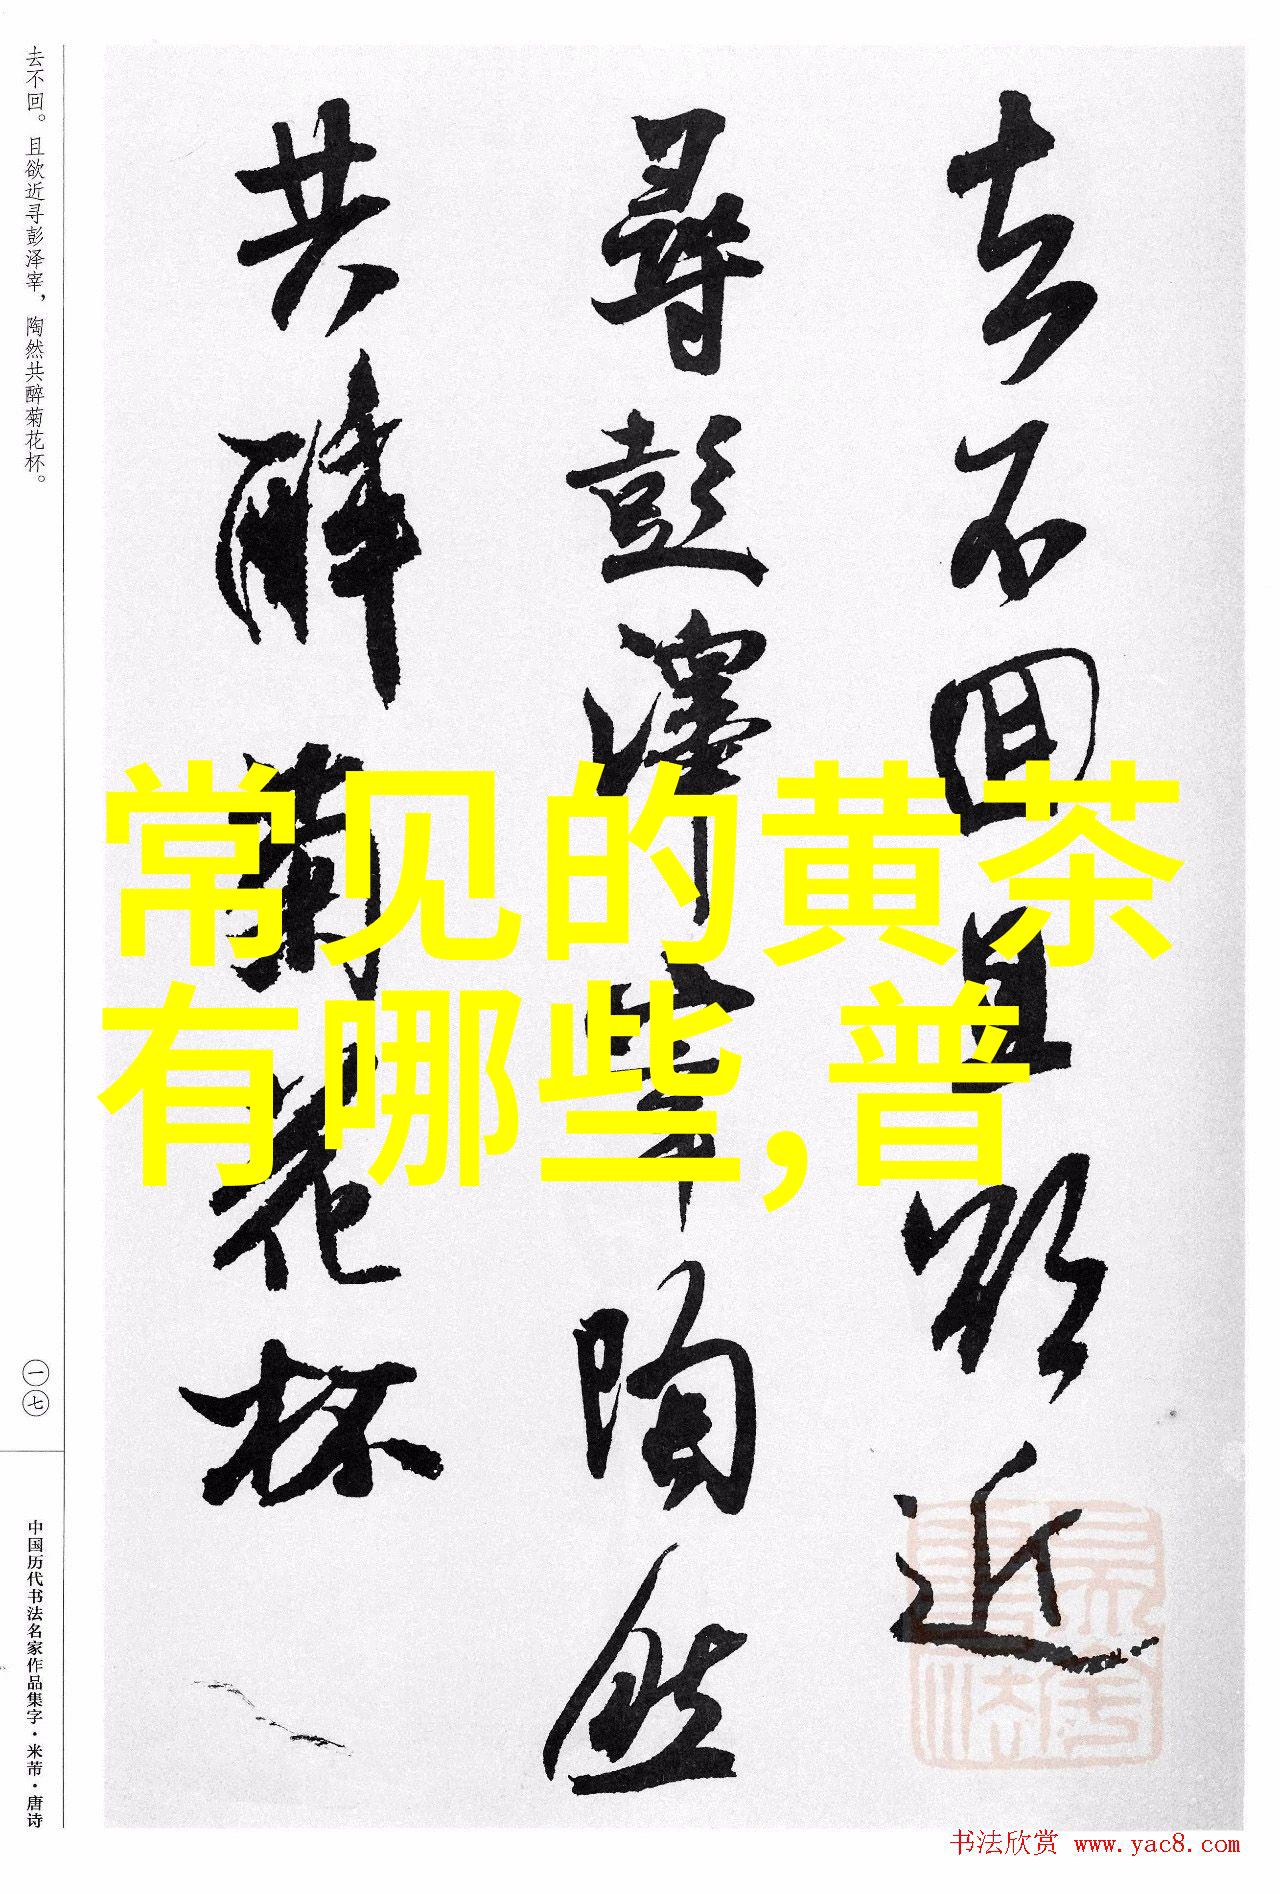 去不回。且欲近寻彭泽宰，陶然共醉菊花杯。
去不回且欲近
尋彭澤宰陶然
共醉菊花杯
常见的黄茶
有哪些,普
一七
中国历代书法名家作品集字·米芾·唐诗
书法欣赏 www.yac8.com